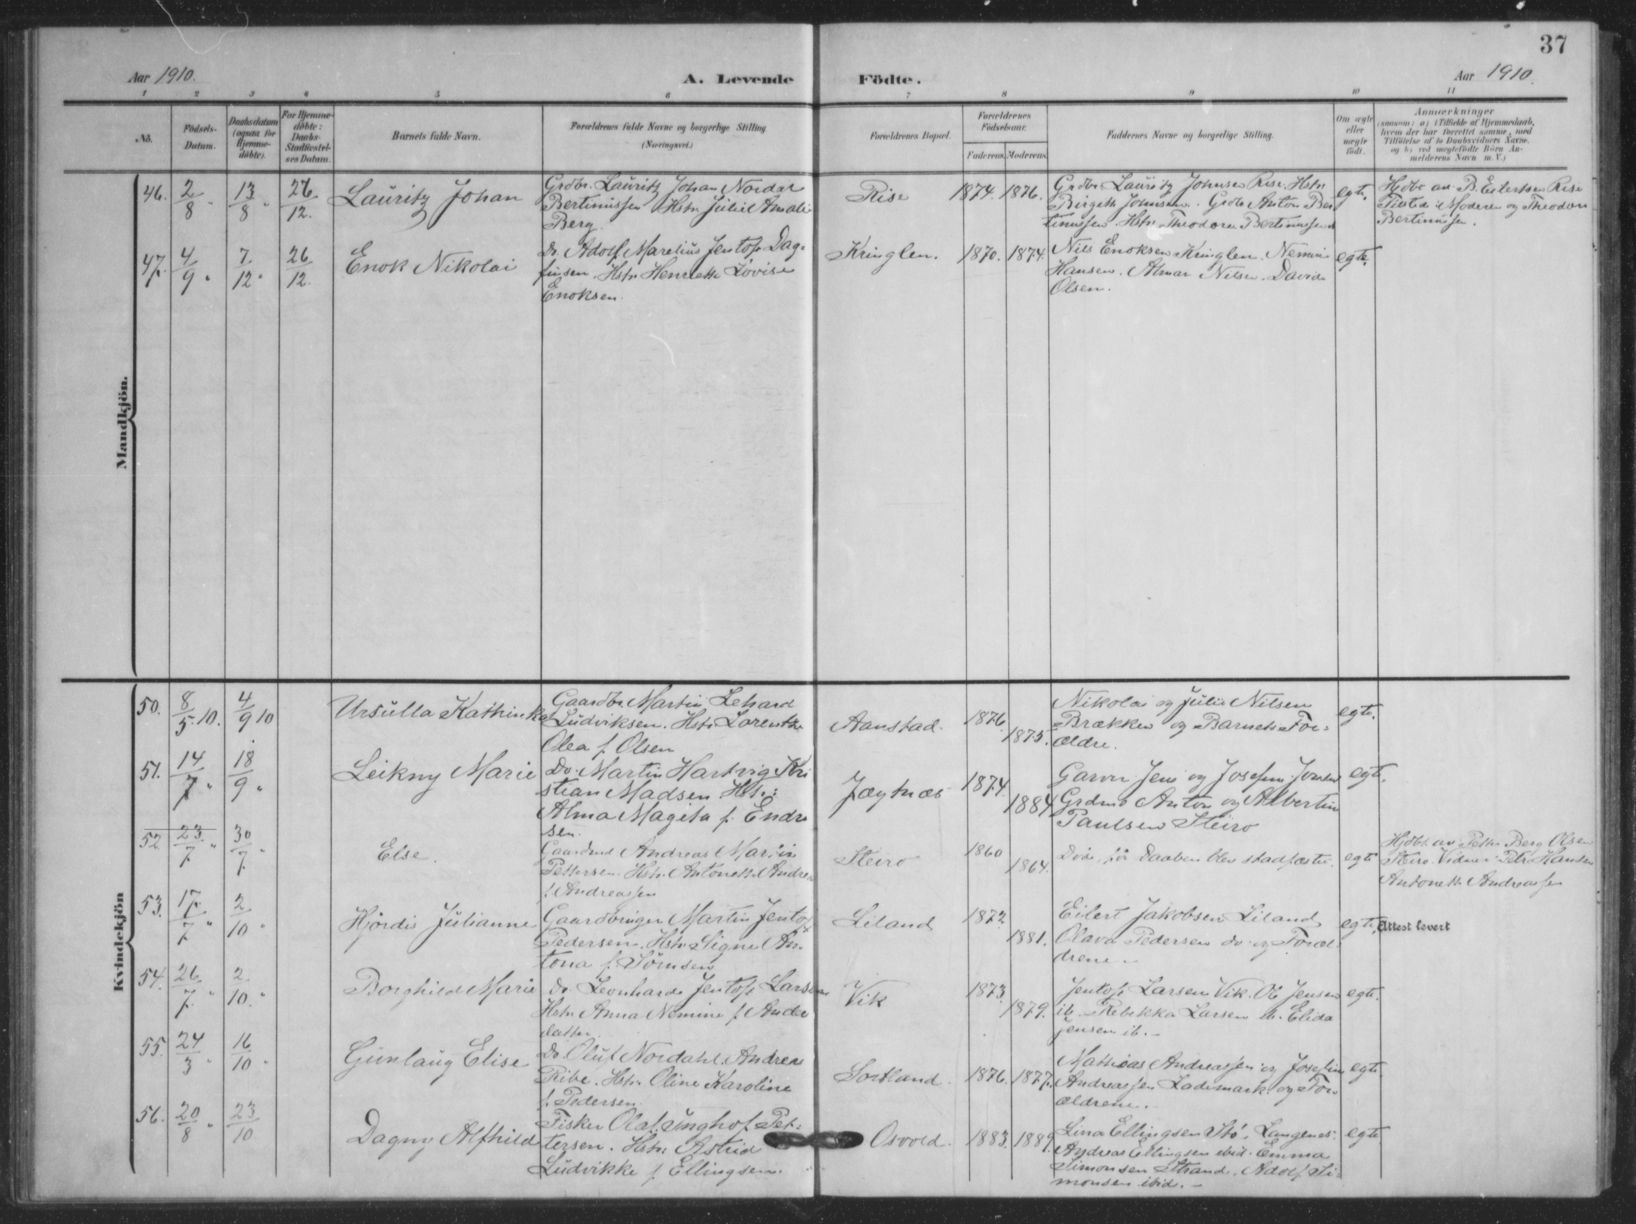 37
Aar 1910.
A. Levende Födte.
Aar 1910.
1 2 3 4 5 6 7 8 9 10 11
No.
Födsels-
Datum.
Daabsdatum
(ogsaa for
Hjemme-
døbte).
For Hjemme-
døbte:
Daabs-
Stadfæstel-
ses Datum.
Barnets fulde Navn.
Forældrenes fulde Navne og borgerlige Stilling
(Næringsvei.)
Forældrenes Bopæl.
Forældrenes
Fødselsaar.
Faderens. Moderens.
Faddernes Navne og borgerlige Stilling.
Om ægte
eller
uægte
født.
Anmærkninger
Mandkjön.
46. 2/8 " 13/8 " 26/12.
Lauritz Johan
Grdbr. Lauritz Johan Nordar
Bertinussen Hstr. Julie Amalie
Berg
Rise
1874. 1876.
Grdbr Lauritz Johnsen Rise. Hstr
Birgith Johnsen. Grdbr Anton Ber
tinussen Hstr. Theodora Bertinussen
egte.
Hdbt av B. Eilertsen Rise
Moderen og Theodora
Bertinussen.
47. 4/9 " 7/12 " 26/12.
Enok Nikolai
Do. Adolf Marelius Jentoft Dag-
finsen. Hstr. Henriette Lovise
Enoksen.
Kringlen.
1870. 1874.
Nils Enoksen Kringlen. Nemin
Hansen. Almar Nilsen. David
Olsen.
egte.
Kvindekjön
50. 8/5 10. 4/9 10
Ursulla Kathinka
Gaardbr. Martin Zehard
Ludviksen. Hstr. Lorentze
Olea f. Olsen
Aanstad.
1876. 1875.
Nikolai og Julie Nilsen
Brækken og Barnets For-
ældre.
egte.
51. 14/7 " 18/9 "
Leikny Marie
Do. Martin Hartvig Kri
stian Madsen Hstr:
Alma Magita f. Endre
sen.
Jægtnæs
1874. 1884
Garver Jens og Josefine
Grdmd Anton og Albertin
Paulsen Steiro
egte.
52 23/7 " 30/7 "
Else.
Gaardmd Andreas Martin
Pettersen. Hstr. Antonette Andrea
f. Andreassen
Steiro
1860 1864.
Døde før Daaben blev stadfæstet.
egte
Hjdbt. av Petter Berg Olsen
Steiro. Vidner Petr Hansen
Antonette Andreassen
53. 17/7 " 2/10 "
Hjørdis Julianne
Gaardbruger Martin Jentoft
Pedersen. Hstr. Signe An-
tona f. Sørnsen
Liland
1872. 1881.
Eilert Jakobsen Liland
Olava Pedersen do og Foræl-
drene.
egte.
Attest levert
54. 26/7 " 2/10. "
Borghild Marie
do. Leonhard Jentoft Larsen
Hstr. Anna Nemine f. Ander
datter
Vik
1873. 1879.
Jentoft Larsen Vik. Ole Jensen
ib. Rebekka Larsen ib. Elida
Jensen ib.
egte.
55. 24/3 " 16/10 "
Gunlaug Elise
Do. Oluf Nordahl Andreas
Ribe. Hstr. Oline Karoline
f. Pedersen.
Sortland.
1876. 1877.
Mathias Andreassen og Josefin
Andreassen Lademark og For-
ældrene.
egte.
56. 20/8 " 23/10
Dagny Alfhild
Fisker Olaf Pet-
tersen. Hstr. Astrid
Ludvikke f. Ellingsen.
Osvold.
1883. 1889.
Lina Ellingsen Stö. Langenes.
Andreas Ellingsen ibid. Emma
Simonsen Strand. Adolf Si-
monsen ibid.
egte